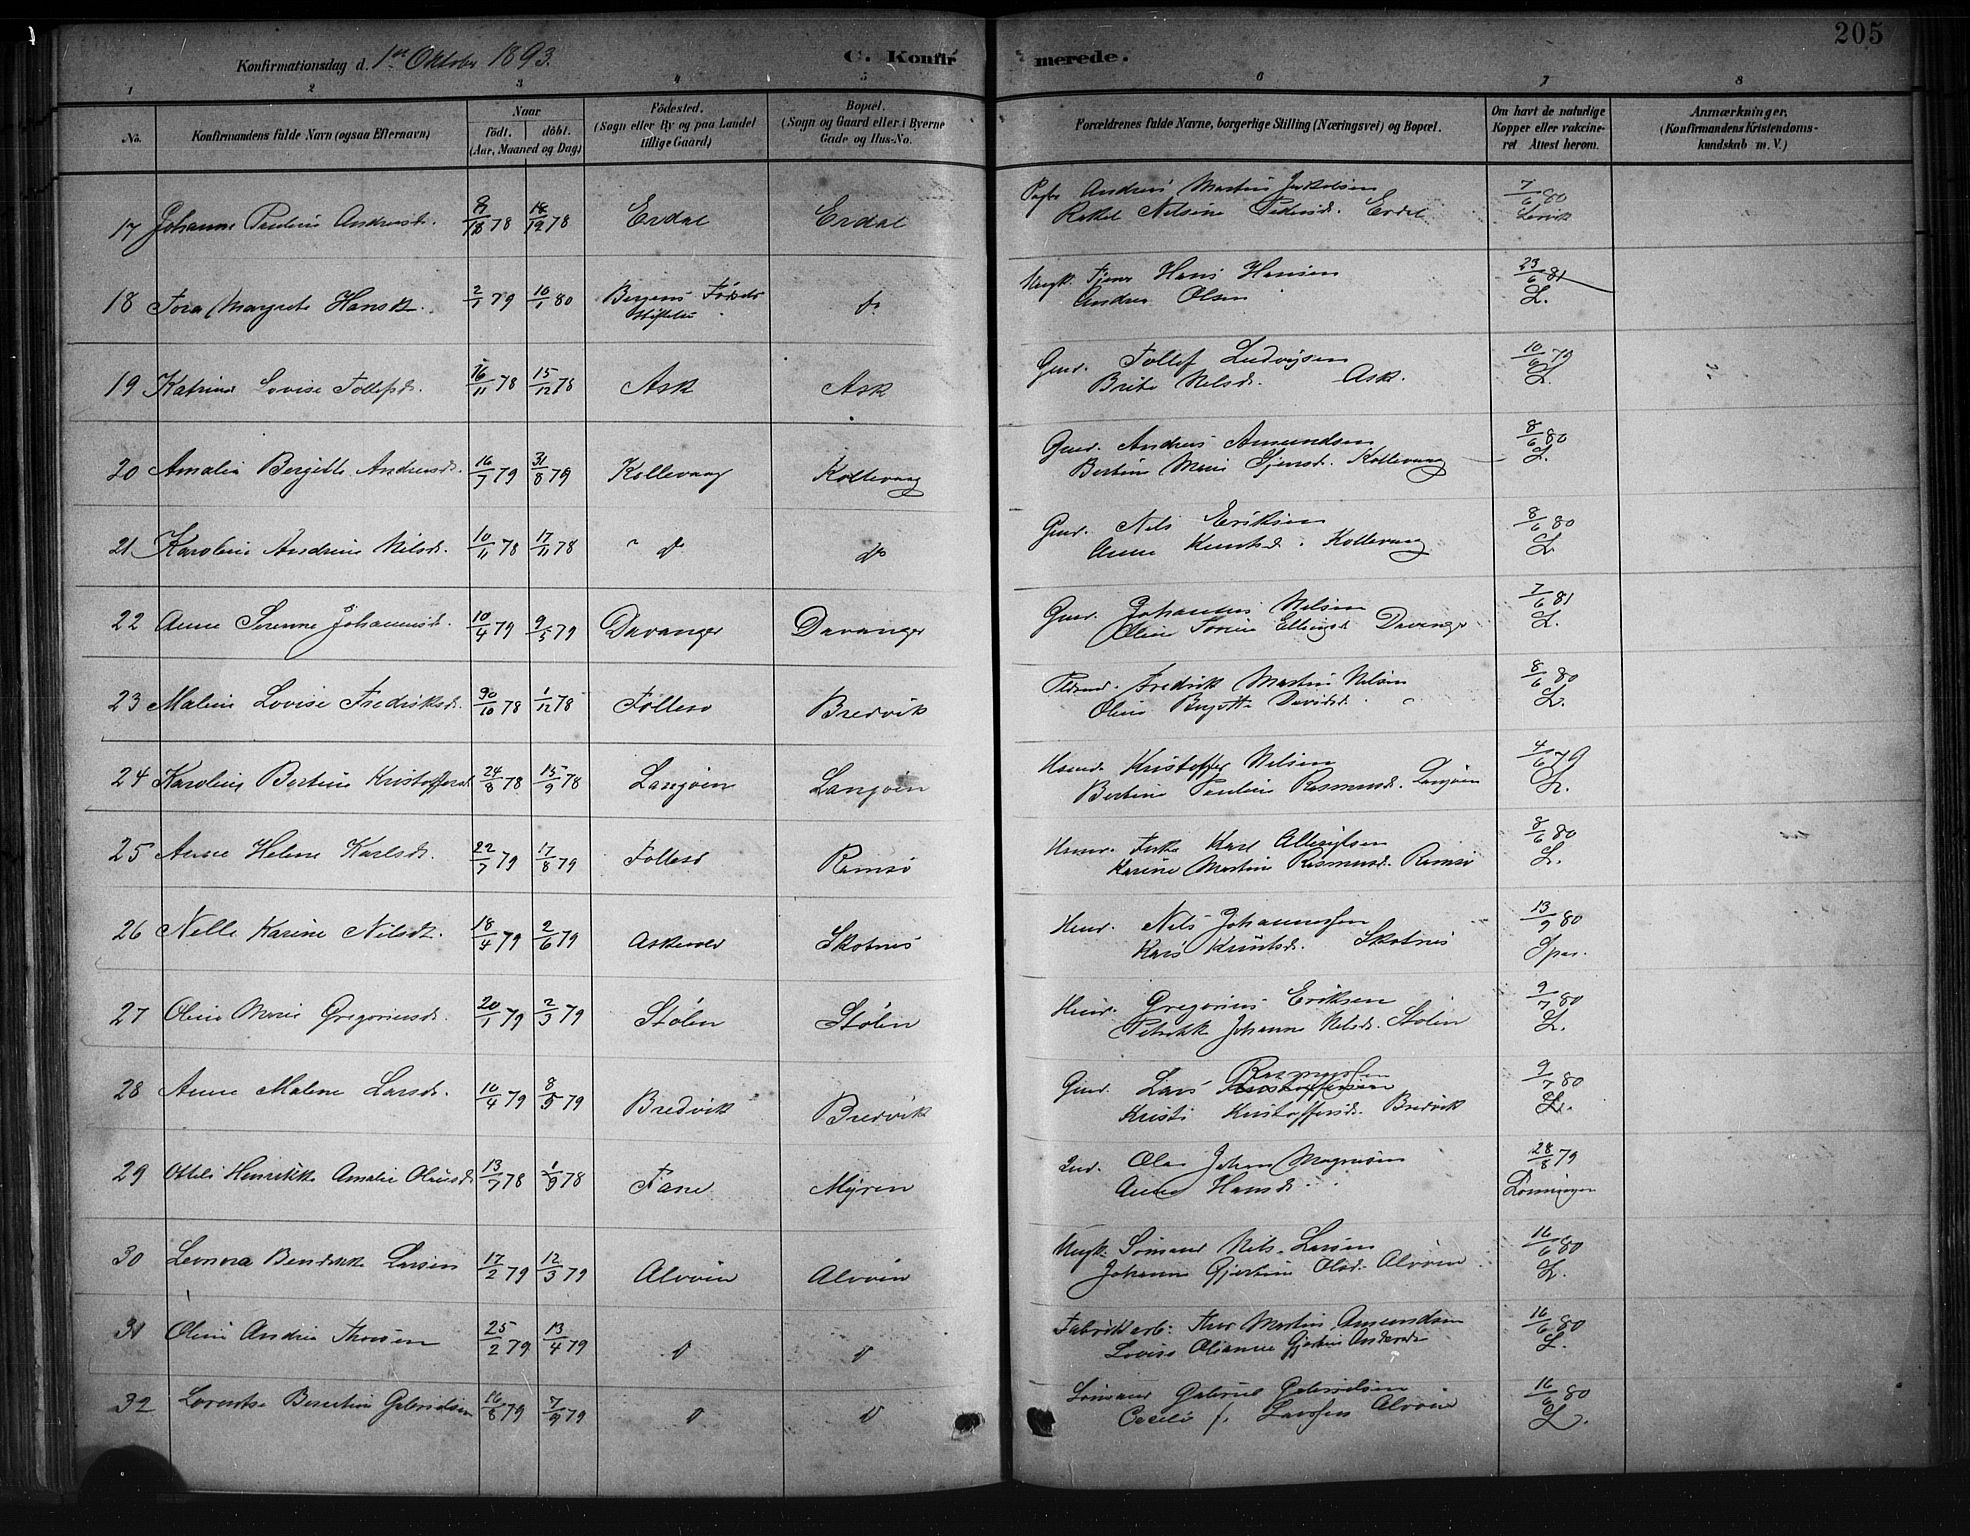 205
Konfirmationsdag d. 1ste Oktober 1893.
C. Konfirmerede.
1 2 3 4 5 6 7 8
No.
Konfirmandens fulde Navn (ogsaa Efternavn)
Naar
födt. döbt.
(Aar, Maaned og Dag)
Födested.
(Sogn eller By og paa Landet
tillige Gaard)
Bopæl.
(Sogn og Gaard eller i Byerne
Gade og Hus-No.
Forældrenes fulde Navne, borgerlige Stilling (Næringsvei) og Bopæl.
Om havt de naturlige
Kopper eller vakcine-
ret Attest herom.
Anmærkninger.
(Konfirmandens Kristendoms-
kundskab m. V.)
17 Johanne Pauline Andreasd. 78 18/12 78 Erdal Erdal
Andreas Martin Jakobsen
Rakel Nilsine Pedersd. Erdal
7/6 80
Lervik
18 Tora Margrete Hansdt. 2/1 79 16/1 80 Bergens Födsels Stiftelse do
Ungk. Tjener Hans Hansen
Andrea Olsen
23/6 81
L.
19 Katrine Lovise Tollefsd. 16/11 78 15/12 78 Ask Ask
Gmd. Tollef Ludvigsen
Brite Nilsd. Ask.
10/6 79
L.
20 Amalia Bergitte Andreasd. 16/7 79 31/8 79 Kollevaag Kollevaag
Gmd. Andreas Amundsen
Bertine Marie Kollevaag
8/6 80
L.
21 Karoline Andrine Nilsd. 10/11 78 17/11 78 do do
Gmd. Nils Eriksen
Anne Knutsd. Kollevaag
8/6 80
L.
22 Anne Serene Johannesd. 10/4 79 9/5 79 Davanger Davanger
Gmd. Johannes Nilsen
Oline Serine Ellingsd. Davanger
7/6 81
L.
23 Maline Lovise Fredriksd. 30/10 78 1/12 78 Follesö Bredvik
Fredrik Martin Nilsen
Oline Bergitte Davidsd.
8/6 80
L.
24 Karoline Bertine Kristoffersd. 24/8 78 15/9 78 Langöen Langöen
Huusmd. Kristoffer Nilsen
Bertine Pauline Rasmusd. Langöen
4/6 79
L.
25 Anne Helene Karlsd. 22/7 79 17/8 79 Follesö Ramsö
Karl
Karine Martine Rasmusd. Ramsö
8/6 80
L.
26 Nelle Karine Nilsdt. 18/4 79 2/6 79 Askevold Skotnes
Nils Johannessen
Kari Knutsd. Skotnes
13/9 80
27 Oline Marie Gregoriusd. 20/1 79 2/3 79 Stölen Stölen
Gregorius Eriksen
Johanne Nilsd. Stölen
9/7 80
L.
28 Anne Malene Larsd. 10/4 79 8/5 79 Bredvik Bredvik
Gmd. Lars Rasmussen
Kristi Kristoffersd. Bredvik
9/7 80
L.
29 Henrikke Amalie Olausd. 13/7 78 1/9 78 Fane Myren
Ind. Ola Johan Magnesen
Anna Hansd.
28/8 79
30 Leonora Bendikke Larsen 17/2 79 12/3 79 Alvöen Alvöen
Ungk. Sömand Nils Larsen
Johanne Gjertine Olsd. Alvöen
16/6 80
L.
31 Oline Andrea Thorsen 25/2 79 13/4 79 do do
Fabrikkarb. Thor Martin Amundsen
Lovise Olianne Gjertine Andersd.
16/6 80
L.
32 Lorentse Berentine Gabrielsen 16/8 79 7/9 79 do do
Sömand Gabriel Gabrielsen
Cecilie f. Larssen Alvöen
16/6 80
L.